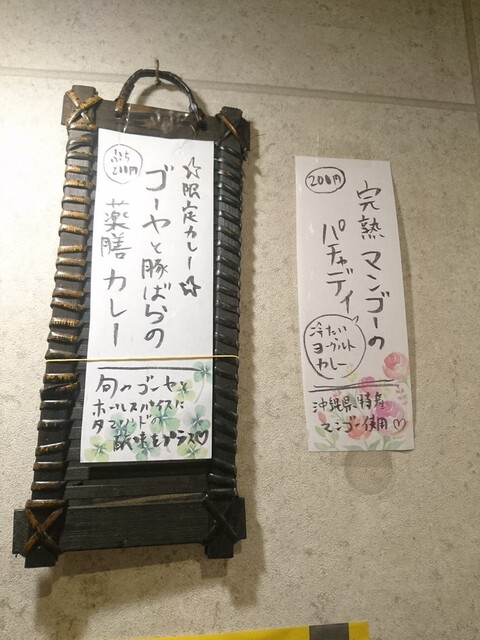 ☆限定カレー☆
ゴーヤと豚ばらの
薬膳カレー
ぷち
200円
旬のゴーヤと
ホールスパイスに
タマリンドの
酸味をプラス♡
200円
完熟マンゴーの
パチャディ
冷たい
ヨーグルト
カレー
沖縄県特産
マンゴー使用♡